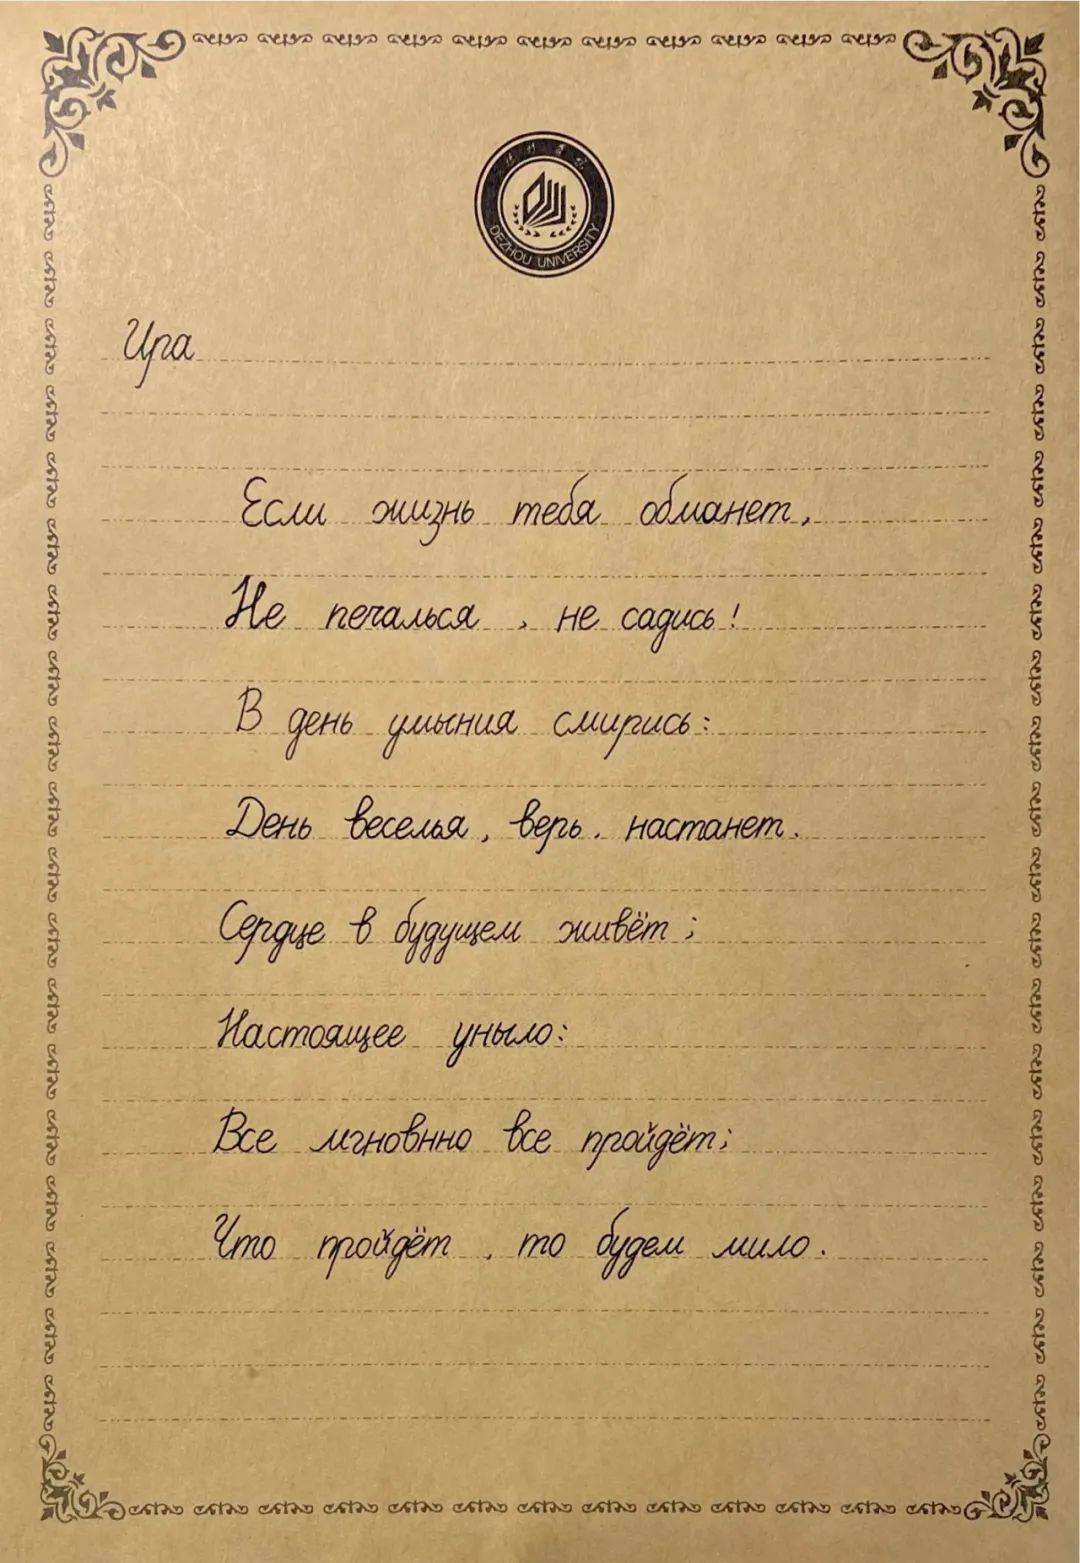 DEZHOU UNIVERSITY
Ира
Если жизнь тебя обманет,
Не печалься, не садись!
В день умыния смирись:
День веселья, верь. настанет.
Сердце в будущем живёт;
Настоящее уныло:
Все мгновнно все пройдёт;
Что пройдёт, то будем мило.